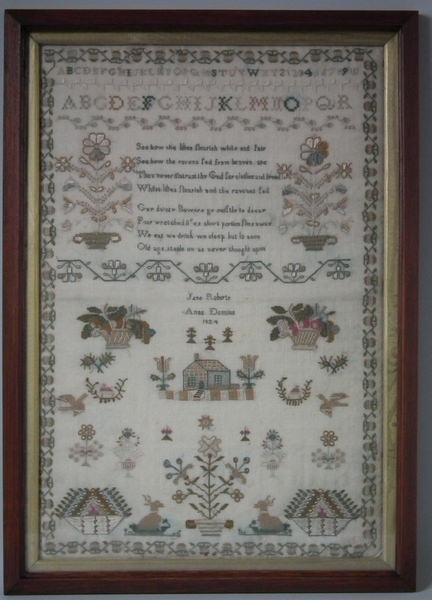 ABCDEFGHIJKLMNOPQRSTUVWXYZ1234
ABCDEFGHIJKLMNOPQR
See how the lilies flourish white and fair
See how the ravens fed from heaven are
Then never distrust thy God for clothes and bread
Whilst lilies flourish and the ravens fed
Our flowing go swiftly to decay
Poor wretched short portion flies away
We eat we drink we sleep but lo anon
Old age steals on us never thought upon
Jane Roberts
Anno Domini